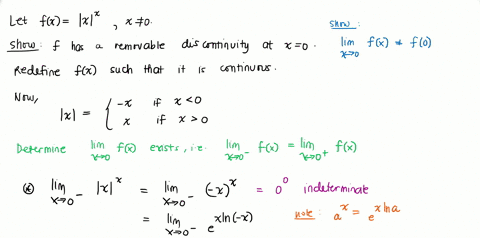 Let f(x) = |x|^x , x ≠ 0.
show: f has a removable discontinuity at x = 0.
Redefine f(x) such that it is continuous.
show:
lim x→0 f(x) ≠ f(0)
Now,
|x| = { -x if x < 0
x if x > 0
Determine lim x→0 f(x) exists, i.e. lim x→0⁻ f(x) = lim x→0⁺ f(x)
⊛ lim x→0⁻ |x|^x = lim x→0⁻ (-x)^x = 0^0 indeterminate
= lim x→0⁻ e^(x ln(-x))
note: a^x = e^(x ln a)